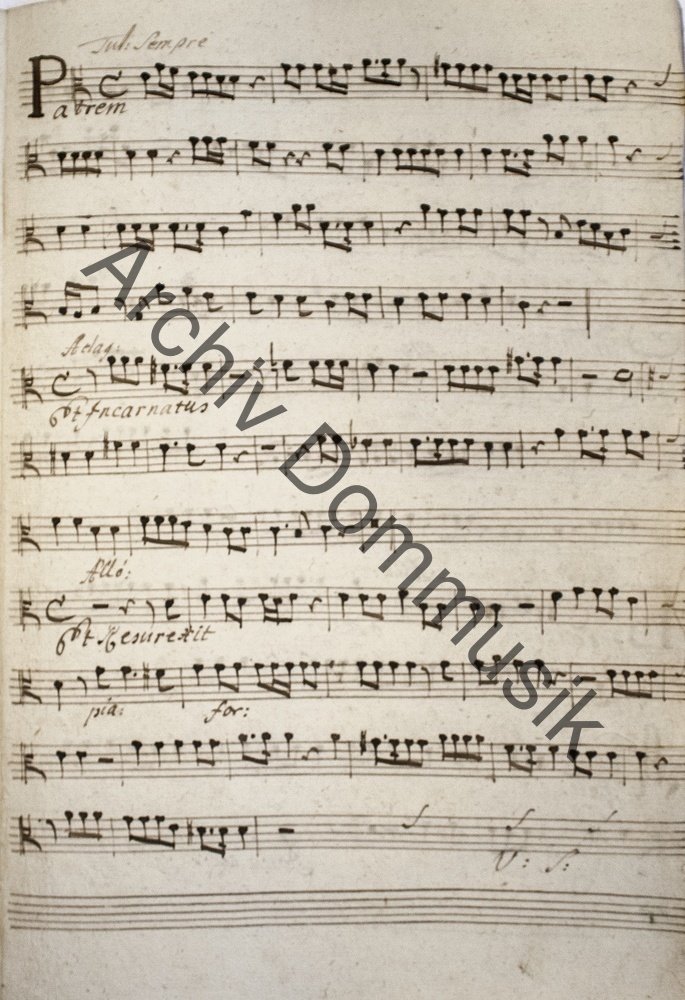 Tut: Sempre
Patrem
Adag:
Et Incarnatus
Allo:
Et Resurexit
pia: for:
V: S:
Archiv Dommusik